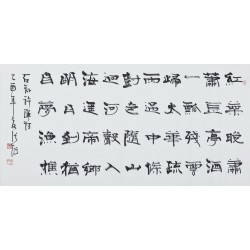 紅葉晚蕭
蕭長亭酒
一瓢殘雲
歸太華疏
雨過中條
樹色隨山
迥河聲入
海遙帝鄉
明日到猶
自夢漁樵
許渾詩
乙酉年